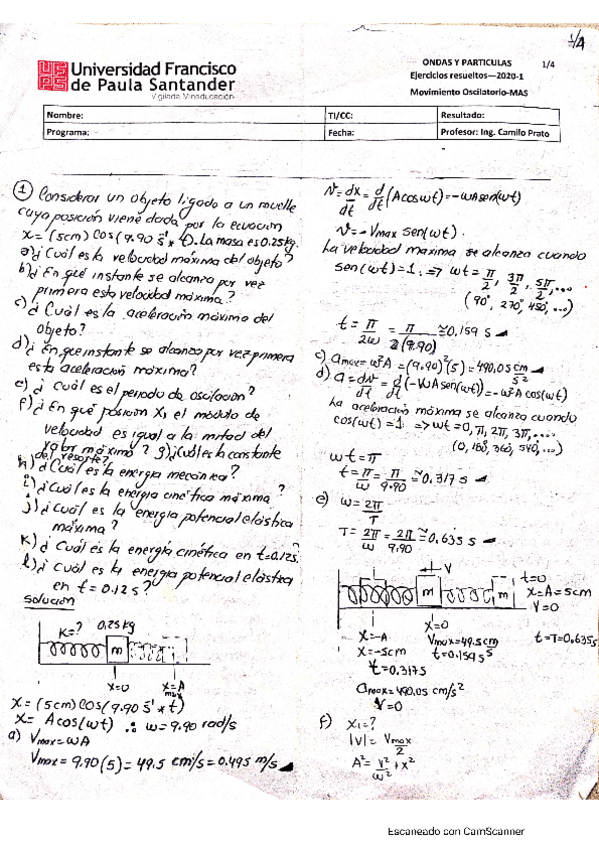 1/4
Universidad Francisco
de Paula Santander
Vigilada Mineducación
ONDAS Y PARTICULAS 1/4
Ejercicios resueltos—2020-1
Movimiento Oscilatorio-MAS
Nombre: TI/CC: Resultado:
Programa: Fecha: Profesor: Ing. Camilo Prato
① Considerar un objeto ligado a un muelle
cuya posición viene dada por la ecuación
x = (5cm) Cos(9.90 s⁻¹ * t). La masa es 0.25kg.
a) ¿Cuál es la velocidad máxima del objeto?
b) ¿En qué instante se alcanza por vez
primera esta velocidad máxima?
c) ¿Cuál es la aceleración máxima del
objeto?
d) ¿En que instante se alcanza por vez primera
esta aceleración máxima?
e) ¿Cuál es el periodo de oscilación?
f) ¿En qué posición X₁ el módulo de
velocidad es igual a la mitad del
valor máximo? g) ¿Cuál es la constante
del resorte?
h) ¿Cuál es la energía mecánica?
i) ¿Cuál es la energía cinética máxima?
j) ¿Cuál es la energía potencial elástica
máxima?
k) ¿Cuál es la energía cinética en t=0.12s?
l) ¿Cuál es la energía potencial elástica
en t = 0.12 s?
Solución
K=? 0,25kg
m
x=0 x=A
max
x = (5cm) Cos(9.90 s⁻¹ * t)
x = A cos(ωt) ∴ ω = 9.90 rad/s
a) Vmax = ωA
Vmax = 9.90(5) = 49.5 cm/s = 0.495 m/s
v = dx/dt = d/dt (A cos ωt) = -ωA sen(ωt)
v = -Vmax sen(ωt).
La velocidad maxima se alcanza cuando
sen(ωt) = 1 ⇒ ωt = π/2, 3π/2, 5π/2, ...
(90°, 270°, 450°, ...)
t = π/2ω = π/2(9.90) ≅ 0.159 s
c) amax = ω²A = (9.90)²(5) = 490,05 cm/s²
d) a = dv/dt = d/dt (-ωA sen(ωt)) = -ω²A cos(ωt)
La aceleración máxima se alcanza cuando
cos(ωt) = 1 ⇒ ωt = 0, π, 2π, 3π, ...
(0, 180°, 360, 540, ...)
ωt = π
t = π/ω = π/9.90 ≅ 0.317 s
e) ω = 2π/T
T = 2π/ω = 2π/9.90 ≅ 0.635 s
V
m m
t=0
x=A=5cm
V=0
x=-A x=0
x=-5cm Vmax=49.5cm/s t=T=0,635s
t=0.317s t=0.159s
amax=490,05 cm/s²
V=0
f) X₁=?
|V| = Vmax/2
A² = V²/ω² + x²
Escaneado con CamScanner